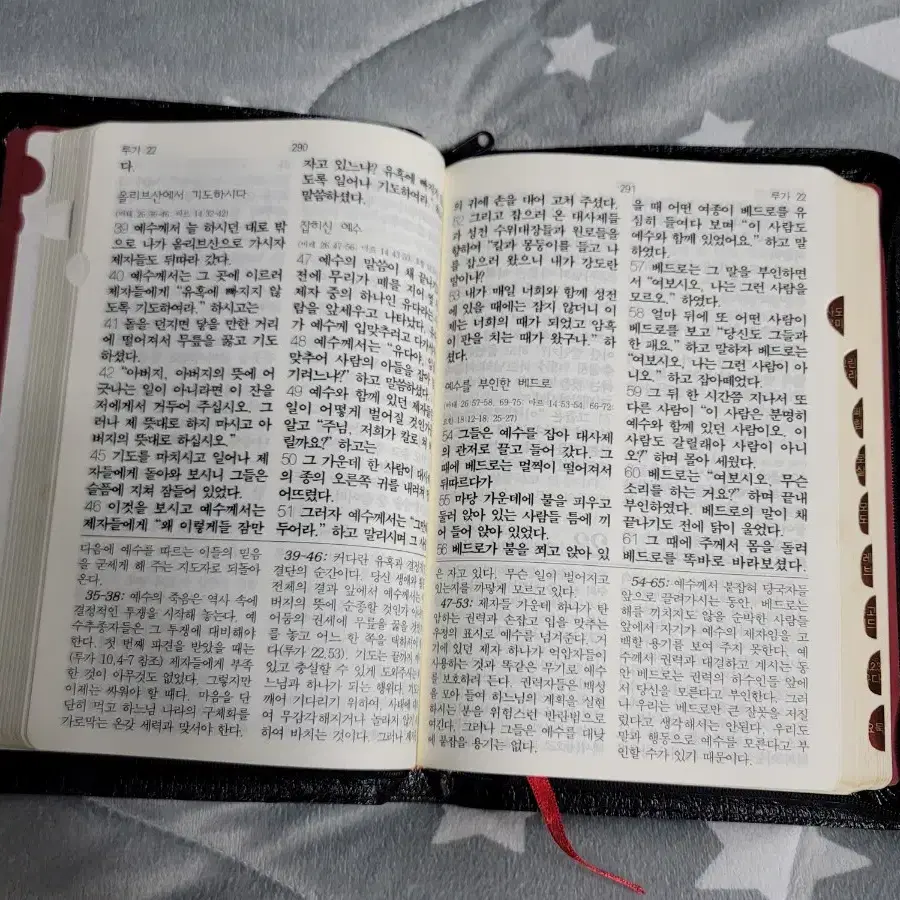 루가 22
290
다.
올리브산에서 기도하시다
(마태 26·36-46; 마르 14·32-42)
39 예수께서 늘 하시던 대로 밖
으로 나가 올리브산으로 가시자
제자들도 뒤따라 갔다.
40 예수께서는 그 곳에 이르러
제자들에게 “유혹에 빠지지 않
도록 기도하여라.” 하시고는
41 돌을 던지면 닿을 만한 거리
에 떨어져서 무릎을 꿇고 기도
하셨다.
42 “아버지, 아버지의 뜻에 어
긋나는 일이 아니라면 이 잔을
저에게서 거두어 주십시오. 그
러나 제 뜻대로 하지 마시고 아
버지의 뜻대로 하십시오.”
45 기도를 마치시고 일어나 제
자들에게 돌아와 보시니 그들은
슬픔에 지쳐 잠들어 있었다.
46 이것을 보시고 예수께서는
제자들에게 “왜 이렇게들 잠만
자고 있느냐? 유혹에 빠지지
도록 일어나 기도하여라.
말씀하셨다.
잡히신 예수
47 예수의 말씀이 채 끝나기
전에 무리가 떼를 지어
제자 중의 하나인 유다라는
람을 앞세우고 나타났다.
가 예수께 입맞추려고 다가
48 예수께서는 “유다야, 입
맞추어 사람의 아들을 잡아
기려느냐?” 하고 말씀하셨다.
49 예수와 함께 있던 제자들
일이 어떻게 벌어질 것인가
알고 “주님, 저희가 칼로
릴까요?” 하고는
50 그 가운데 한 사람이 대사
의 종의 오른쪽 귀를 내려쳐
어뜨렸다.
51 그러자 예수께서는
두어라.” 하고 말리시며 그
다음에 예수를 따르는 이들의 믿음
을 굳세게 해 주는 지도자로 되돌아
온다.
35-38: 예수의 죽음은 역사 속에
결정적인 투쟁을 시작해 놓는다. 예
수추종자들은 그 투쟁에 대비해야
한다. 첫 번째 파견을 받았을 때는
(루가 10,4-7 참조) 제자들에게 부족
한 것이 아무것도 없었다. 그렇지만
이제는 싸워야 할 때다. 마음을 단
단히 먹고 하느님 나라의 구체화를
가로막는 온갖 세력과 맞서야 한다.
39-46: 커다란 유혹과 결정적
결단의 순간이다. 당신 생애와
전체의 결과 앞에서 예수께서는
버지의 뜻에 순종할 것인가 아니
어둠의 권세에 무릎을 꿇을 것인
를 놓고 어느 한 쪽을 택하셔야
다(루가 22,53). 기도는 끝까지
있고 충실할 수 있게 도와주시는
느님과 하나가 되는 행위다. 기도
깨어 기다리기 위하여, 사태에
여 무감각해지거나 놀라지 않기
하여 바치는 것이다. 그러나 제
291
루가 22
의 귀에 손을 대어 고쳐 주셨다.
52 그리고 잡으러 온 대사제들
과 성전 수위대장들과 원로들을
향하여 “칼과 몽둥이를 들고 나
를 잡으러 왔으니 내가 강도란
말이냐?
53 내가 매일 너희와 함께 성전
에 있을 때에는 잡지 않더니 이
제는 너희의 때가 되었고 암흑
이 판을 치는 때가 왔구나.” 하
셨다.
예수를 부인한 베드로
(마태 26·57-58, 69-75; 마르 14·53-54, 66-72;
요한 18·12-18, 25-27)
54 그들은 예수를 잡아 대사제
의 관저로 끌고 들어 갔다. 그
때에 베드로는 멀찍이 떨어져서
뒤따르다가
55 마당 가운데에 불을 피우고
둘러 앉아 있는 사람들 틈에 끼
어 들어 앉아 있었다.
56 베드로가 불을 쬐고 앉아 있
을 때 어떤 여종이 베드로를 유
심히 들여다 보며 “이 사람도
예수와 함께 있었어요.” 하고 말
하였다.
57 베드로는 그 말을 부인하면
서 “여보시오, 나는 그런 사람을
모르오.” 하였다.
58 얼마 뒤에 또 어떤 사람이
베드로를 보고 “당신도 그들과
한 패요.” 하고 말하자 베드로는
“여보시오, 나는 그런 사람이 아
니오.” 하고 잡아떼었다.
59 그 뒤 한 시간쯤 지나서 또
다른 사람이 “이 사람은 분명히
예수와 함께 있던 사람이오. 이
사람도 갈릴래아 사람이 아니
오?” 하며 몰아 세웠다.
60 베드로는 “여보시오, 무슨
소리를 하는 거요?” 하며 끝내
부인하였다. 베드로의 말이 채
끝나기도 전에 닭이 울었다.
61 그 때에 주께서 몸을 돌려
베드로를 똑바로 바라보셨다.
은 자고 있다. 무슨 일이 벌어지고
있는지를 까맣게 모르고 있다.
47-53: 제자들 가운데 하나가 탄
압하는 권력과 손잡고 입을 맞추는
우정의 표시로 예수를 넘겨준다. 거
기에 있던 제자 하나가 억압자들이
사용하는 것과 똑같은 무기로 예수
를 보호하려 든다. 권력자들은 백성
을 모아 들여 하느님의 계획을 실현
하시는 분을 위험스런 반란범으로
여긴다. 그러나 그들은 예수를 대낮
에 붙잡을 용기는 없다.
54-65: 예수께서 붙잡혀 당국자들
앞으로 끌려가시는 동안, 베드로는
해를 끼치지도 않을 순박한 사람들
앞에서 자기가 예수의 제자임을 고
백할 용기를 보여 주지 못한다. 예
수께서 권력과 대결하고 계시는 동
안 베드로는 권력의 하수인들 앞에
서 당신을 모른다고 부인한다. 그러
나 우리는 베드로만 큰 잘못을 저질
렀다고 생각해서는 안된다. 우리도
말과 행동으로 예수를 모른다고 부
인할 수가 있기 때문이다.